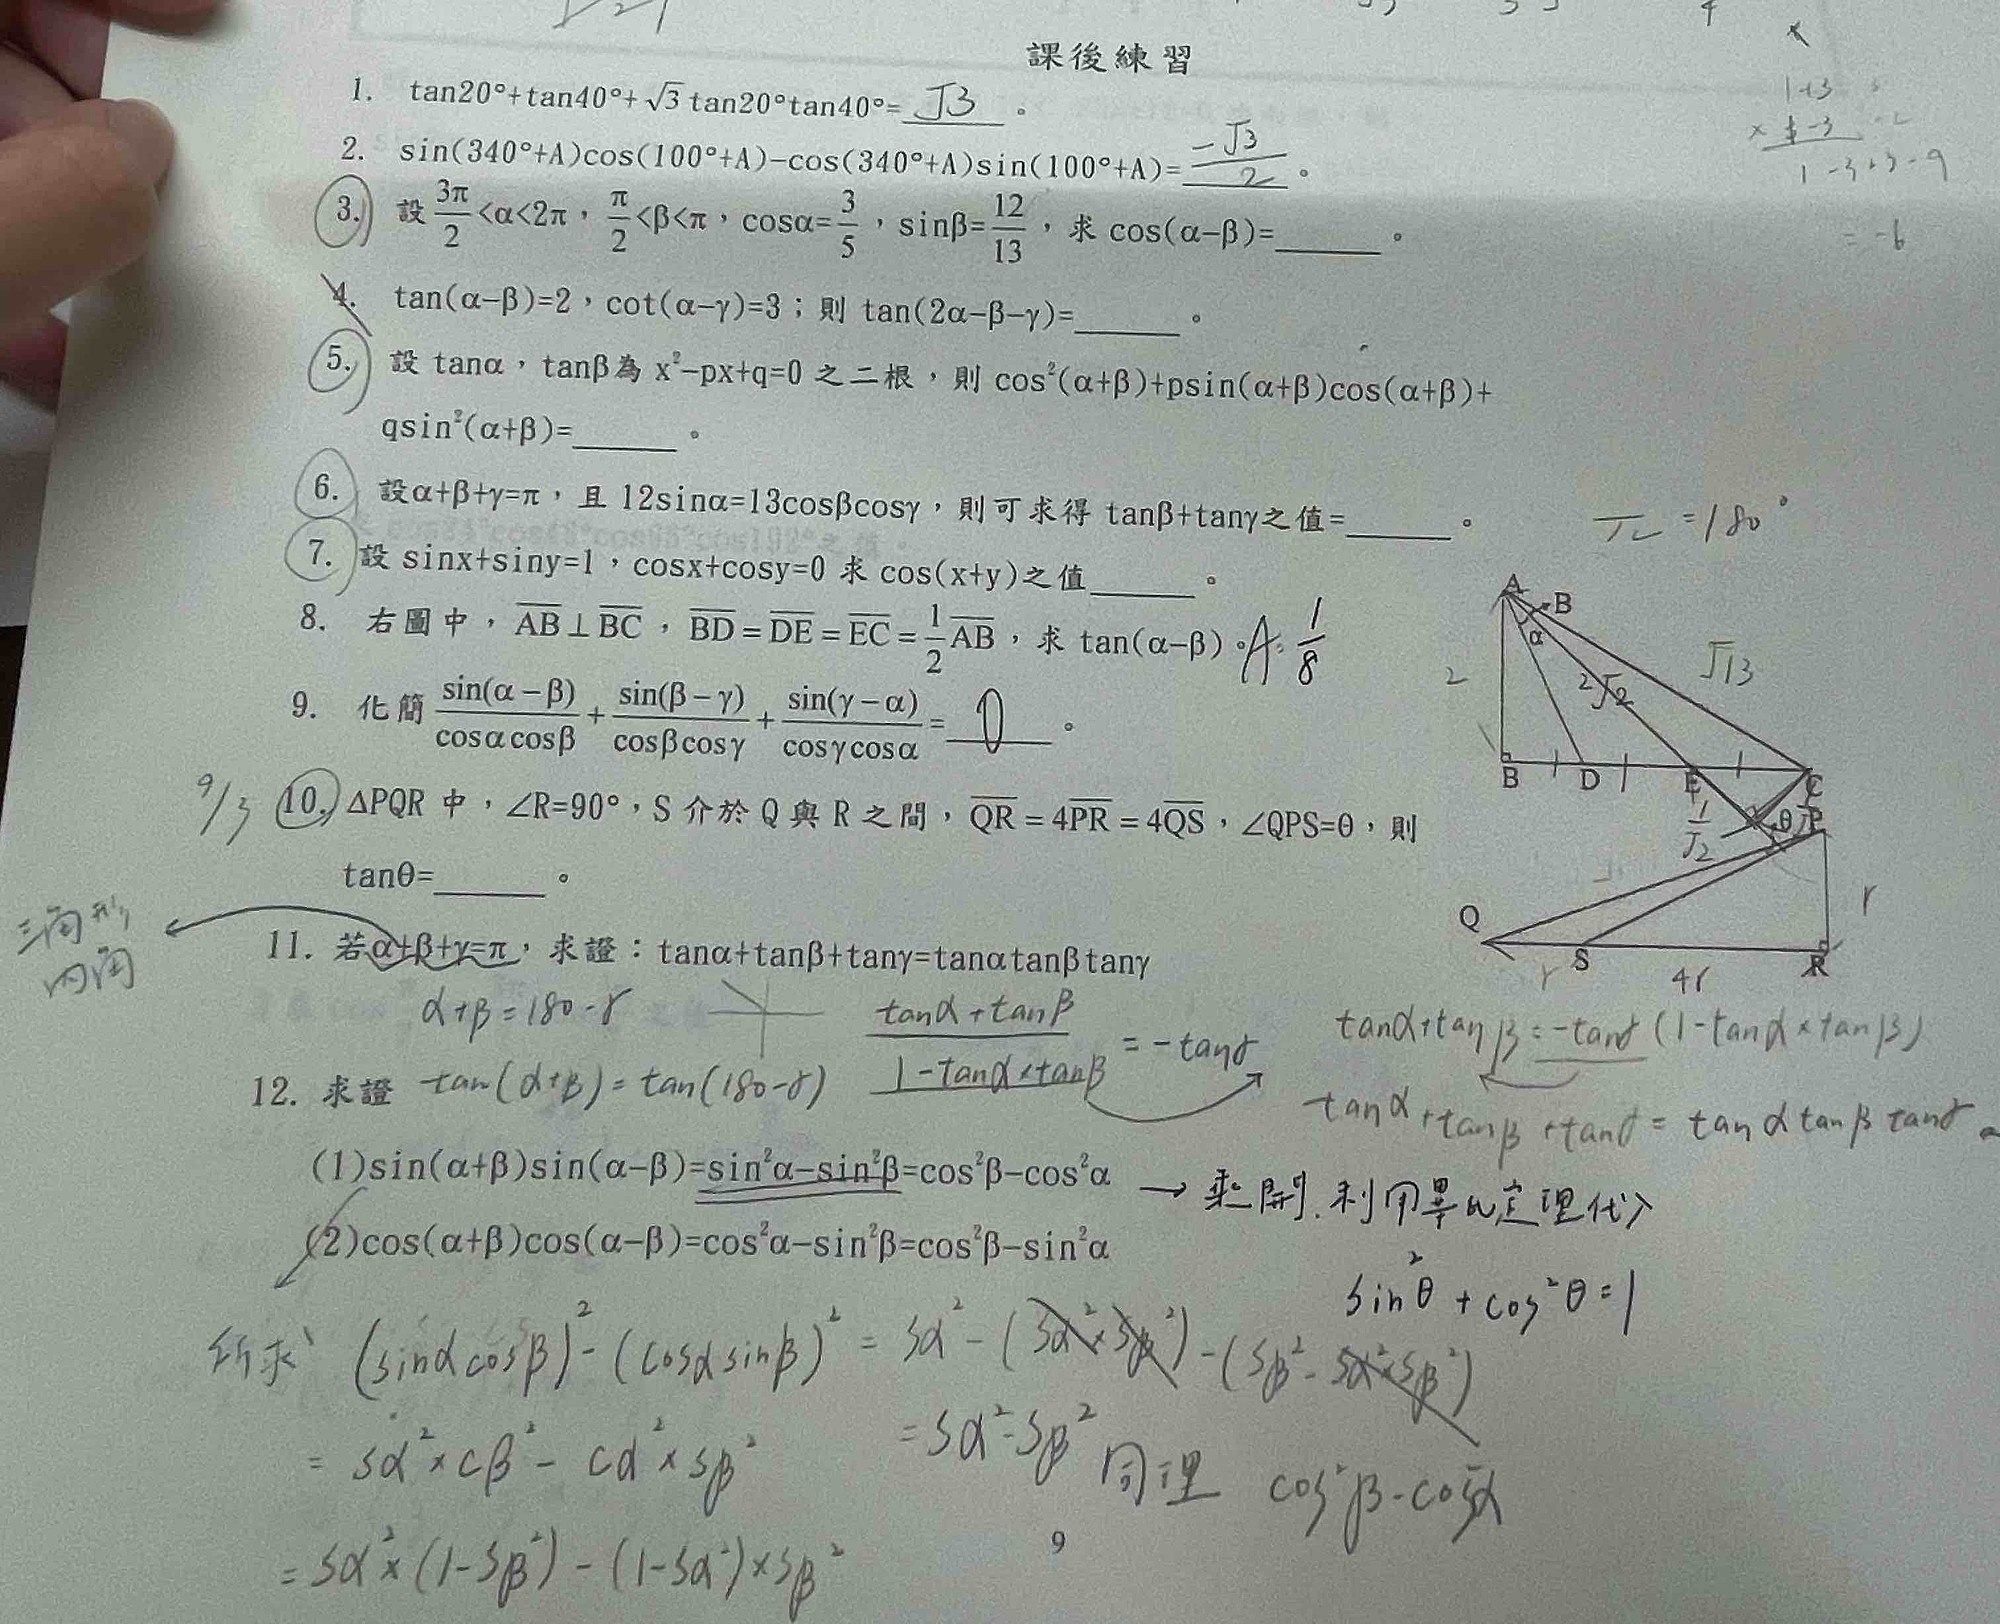 課後練習
1. tan20°+tan40°+√3tan20°tan40°= √3 。
2. sin(340°+A)cos(100°+A)−cos(340°+A)sin(100°+A)= −√3/2 。
3. 設 3π/2<α<2π，π/2<β<π，cosα=3/5，sinβ=12/13，求 cos(α−β)=______。
4. tan(α−β)=2，cot(α−γ)=3；則 tan(2α−β−γ)=______。
5. 設 tanα，tanβ為 x²−px+q=0 之二根，則 cos²(α+β)+psin(α+β)cos(α+β)+
qsin²(α+β)=______。
6. 設α+β+γ=π，且 12sinα=13cosβcosγ，則可求得 tanβ+tanγ之值=______。
π=180°
7. 設 sinx+siny=1，cosx+cosy=0 求 cos(x+y)之值______。
8. 右圖中，AB⊥BC，BD=DE=EC=1/2AB，求 tan(α−β)。A: 1/8
9. 化簡 sin(α−β)/cosαcosβ + sin(β−γ)/cosβcosγ + sin(γ−α)/cosγcosα = 0 。
9/3
10. ΔPQR 中，∠R=90°，S 介於 Q 與 R 之間，QR=4PR=4QS，∠QPS=θ，則
tanθ=______。
1+3
1−3
1−3+3−9
=−6
A
B
α
2
2√2
√13
B D E C
1/√2
θ P
Q
S
R
r
4r
r
三角形
內角
11. 若α+β+γ=π，求證：tanα+tanβ+tanγ=tanαtanβtanγ
α+β=180−γ
(tanα+tanβ)/(1−tanα×tanβ) = −tanγ
tanα+tanβ=−tanγ(1−tanα×tanβ)
12. 求證
tan(α+β)=tan(180−γ)
tanα+tanβ+tanγ=tanαtanβtanγ
(1)sin(α+β)sin(α−β)=sin²α−sin²β=cos²β−cos²α
→ 乘開.利用畢氏定理代入
(2)cos(α+β)cos(α−β)=cos²α−sin²β=cos²β−sin²α
sin²θ+cos²θ=1
所求
(sinαcosβ)²−(cosαsinβ)² = Sα²−(Sα²×Sβ²)−(Sβ²−Sα²×Sβ²)
= Sα²×Cβ²−Cα²×Sβ²
=Sα²−Sβ² 同理 cos²β−cos²α
= Sα²×(1−Sβ²)−(1−Sα²)×Sβ²
9